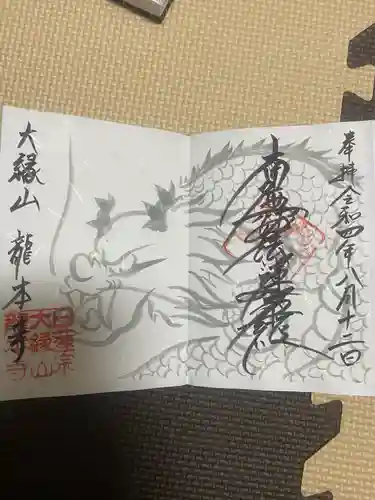 奉拝 令和四年八月十二日
南無妙法蓮華経
大縁山 龍本寺
日蓮宗
大縁山
龍本寺